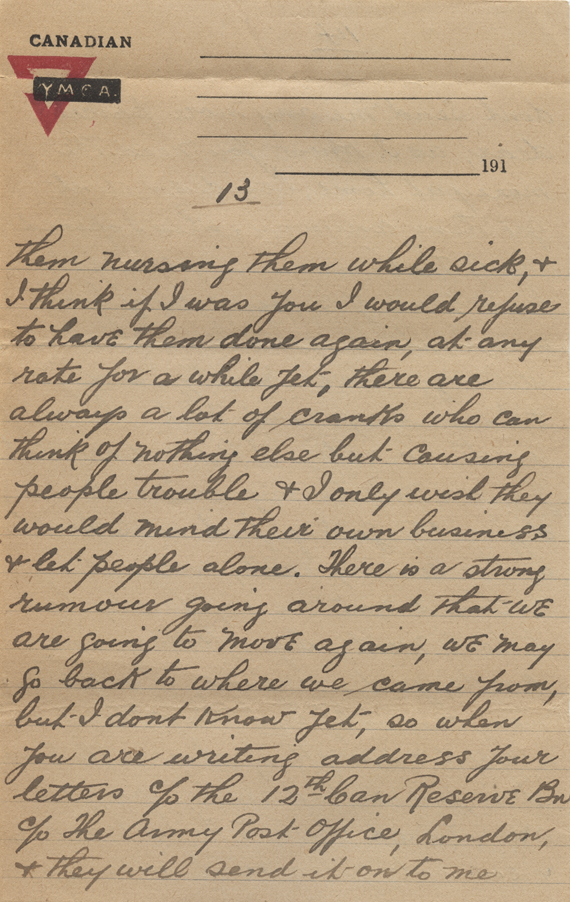 CANADIAN
YMCA.
191
13
them nursing them while sick, &
I think if I was you I would refuse
to have them done again, at any
rate for a while yet, there are
always a lot of cranks who can
think of nothing else but causing
people trouble & I only wish they
would mind their own business
& let people alone. There is a strong
rumour going around that we
are going to move again, we may
go back to where we came from,
but I dont know yet, so when
you are writing address your
letters c/o the 12th Can Reserve Bn
c/o The Army Post Office, London,
& they will send it on to me